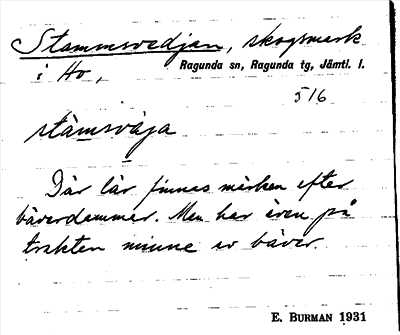 Stammsvedjan, skogsmark
i Ho, Ragunda sn, Ragunda tg, Jämtl. l.
516
stàmsvä́ja
Där lär finnas märken efter
bäverdammar. Men har även på
trakten minne av bäver.
E. BURMAN 1931